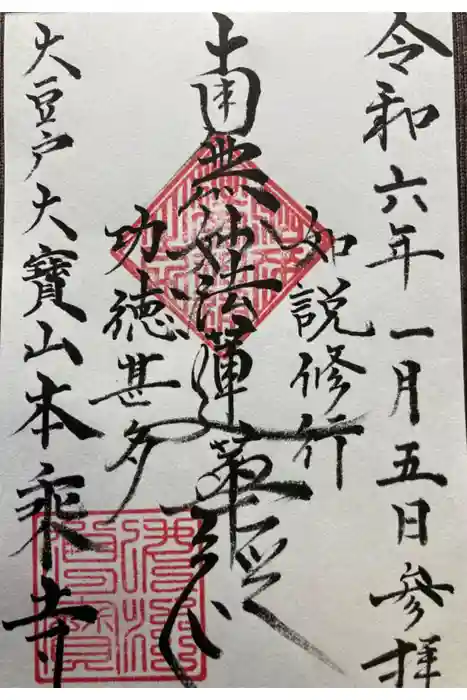 令和六年一月五日參拝
如説修行
南無妙法蓮華経
功徳甚多
大豆戸大寶山本乘寺